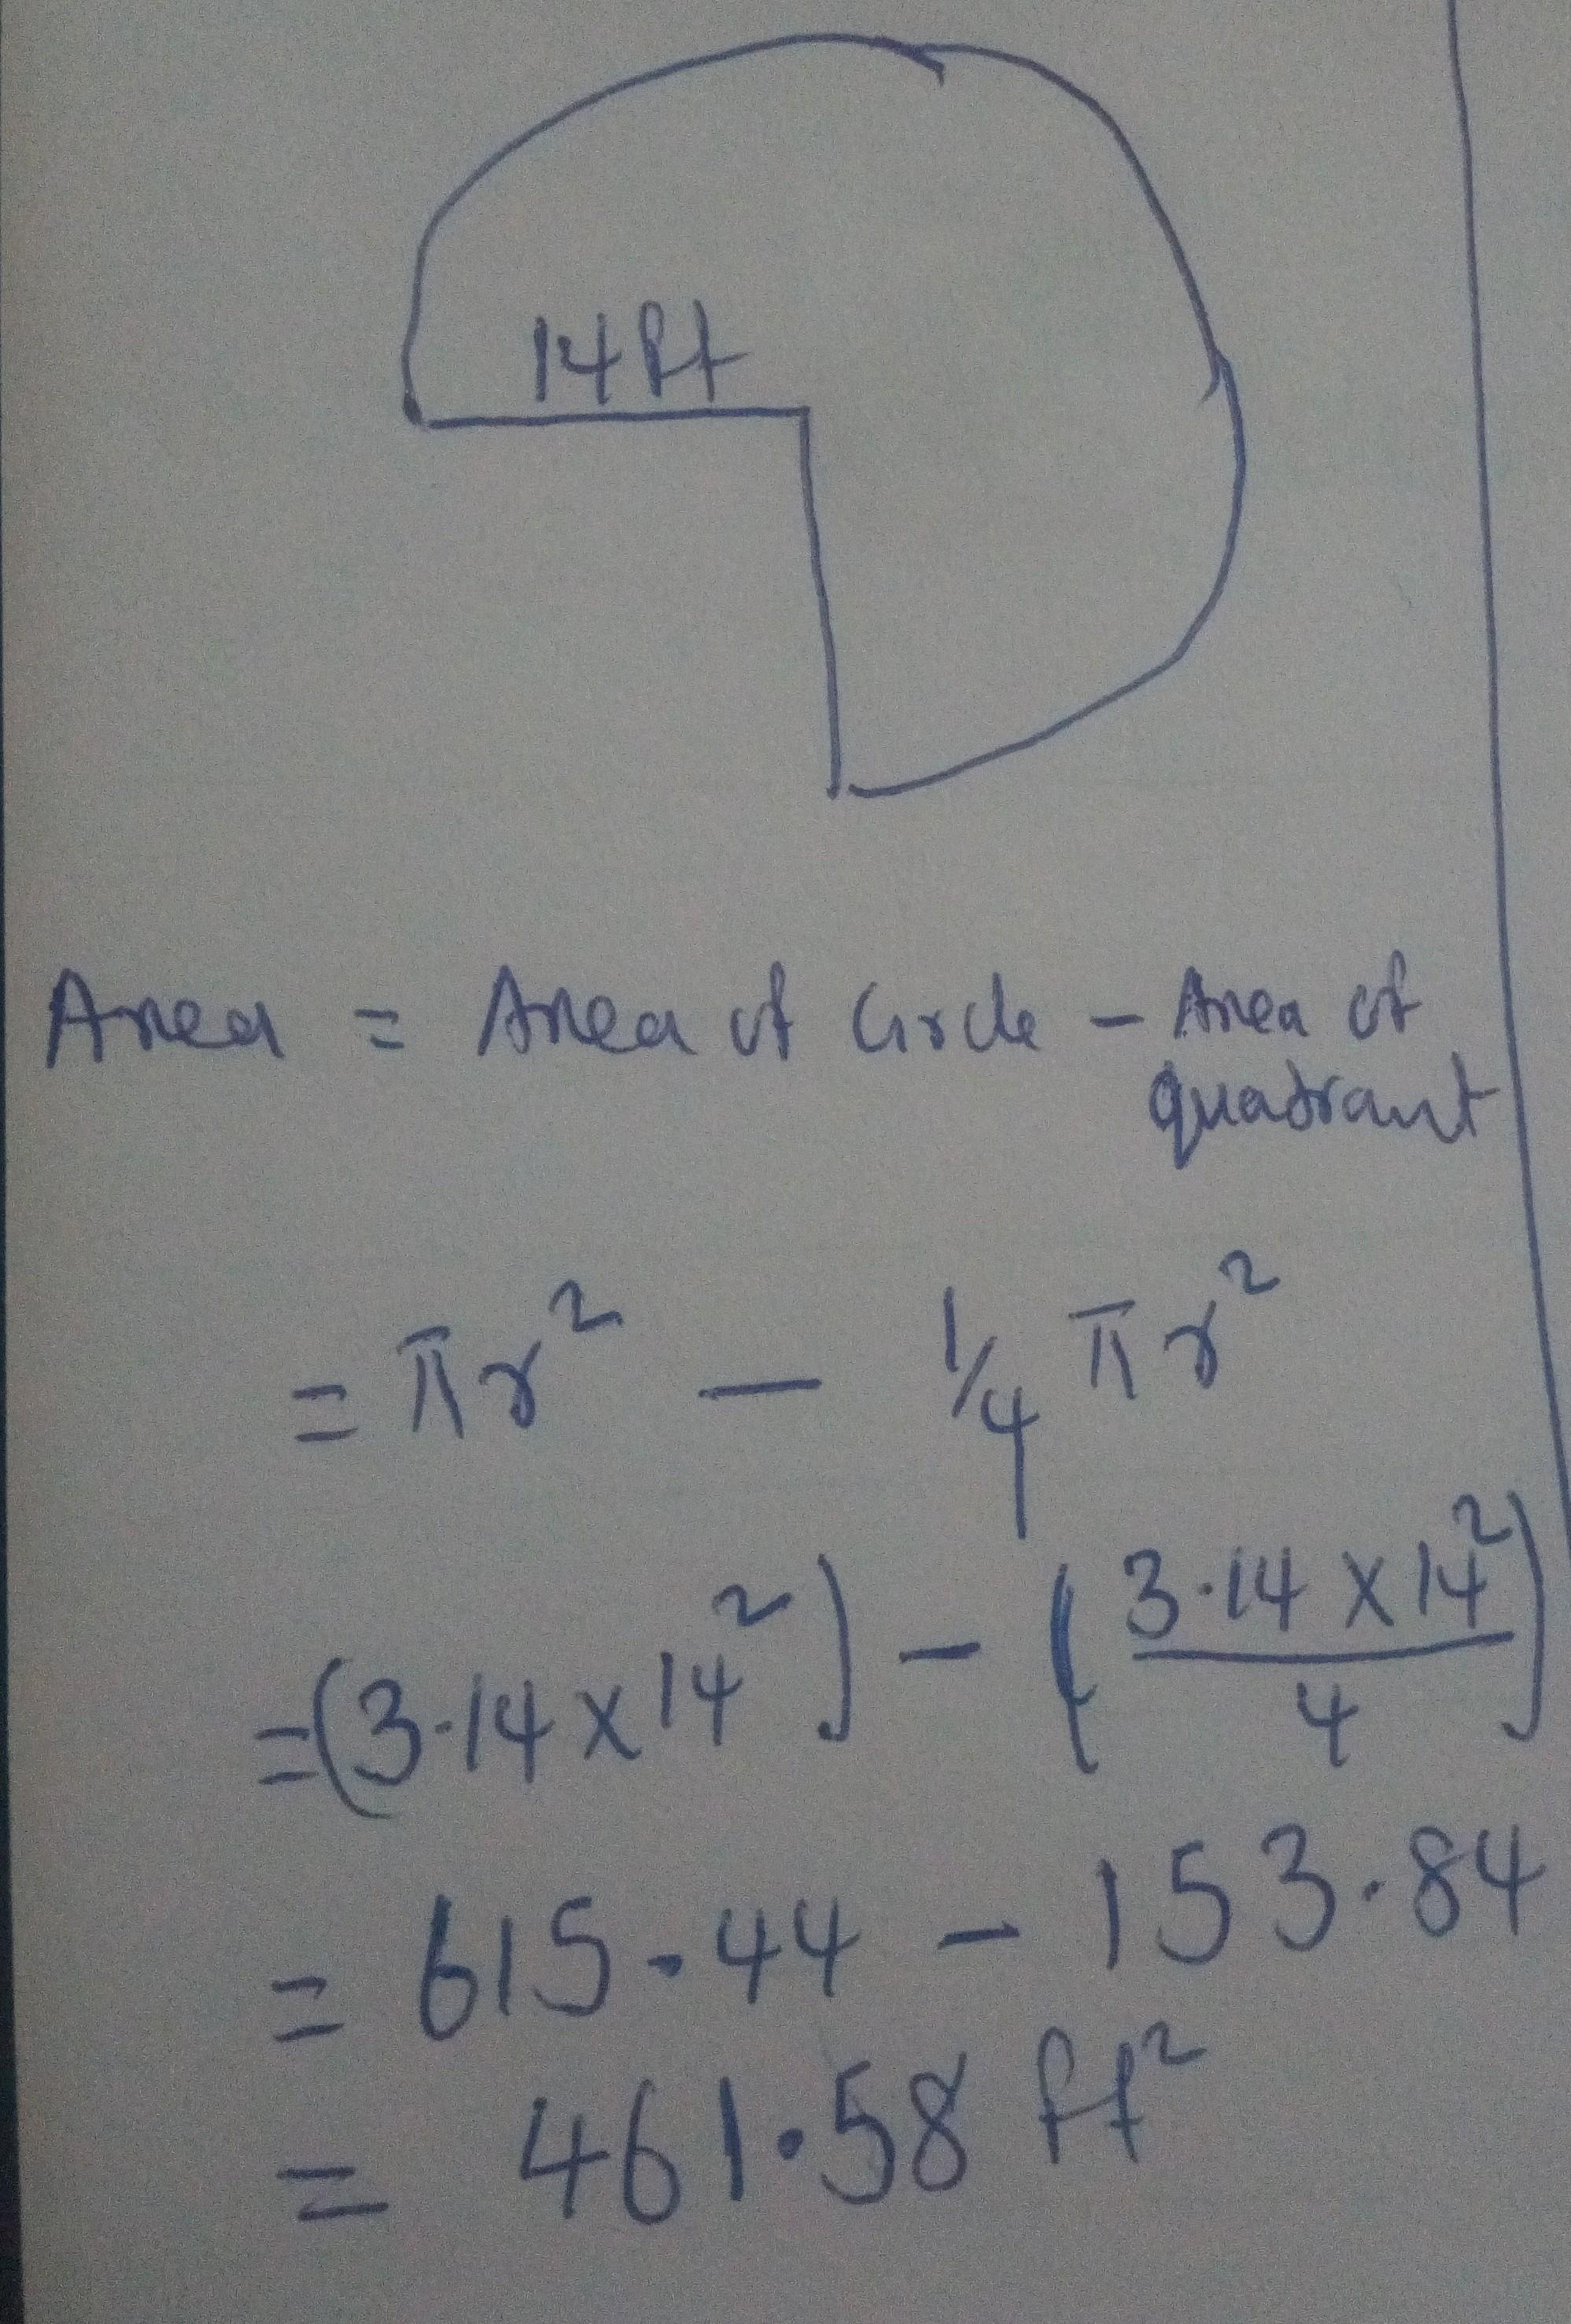 14 ft
Area = Area of Circle - Area of
quadrant
= πr² - 1/4 πr²
=(3.14 x 14²) - (3.14 x 14² / 4)
= 615.44 - 153.84
= 461.58 ft²